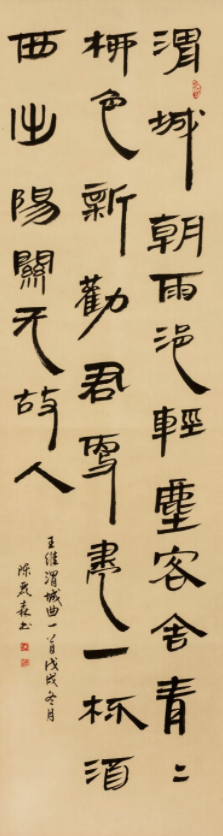 渭城朝雨浥輕塵客舍青〻
柳色新勸君更盡一杯酒
西出陽關无故人
王維渭城曲一首戊戌冬月
陳 森书